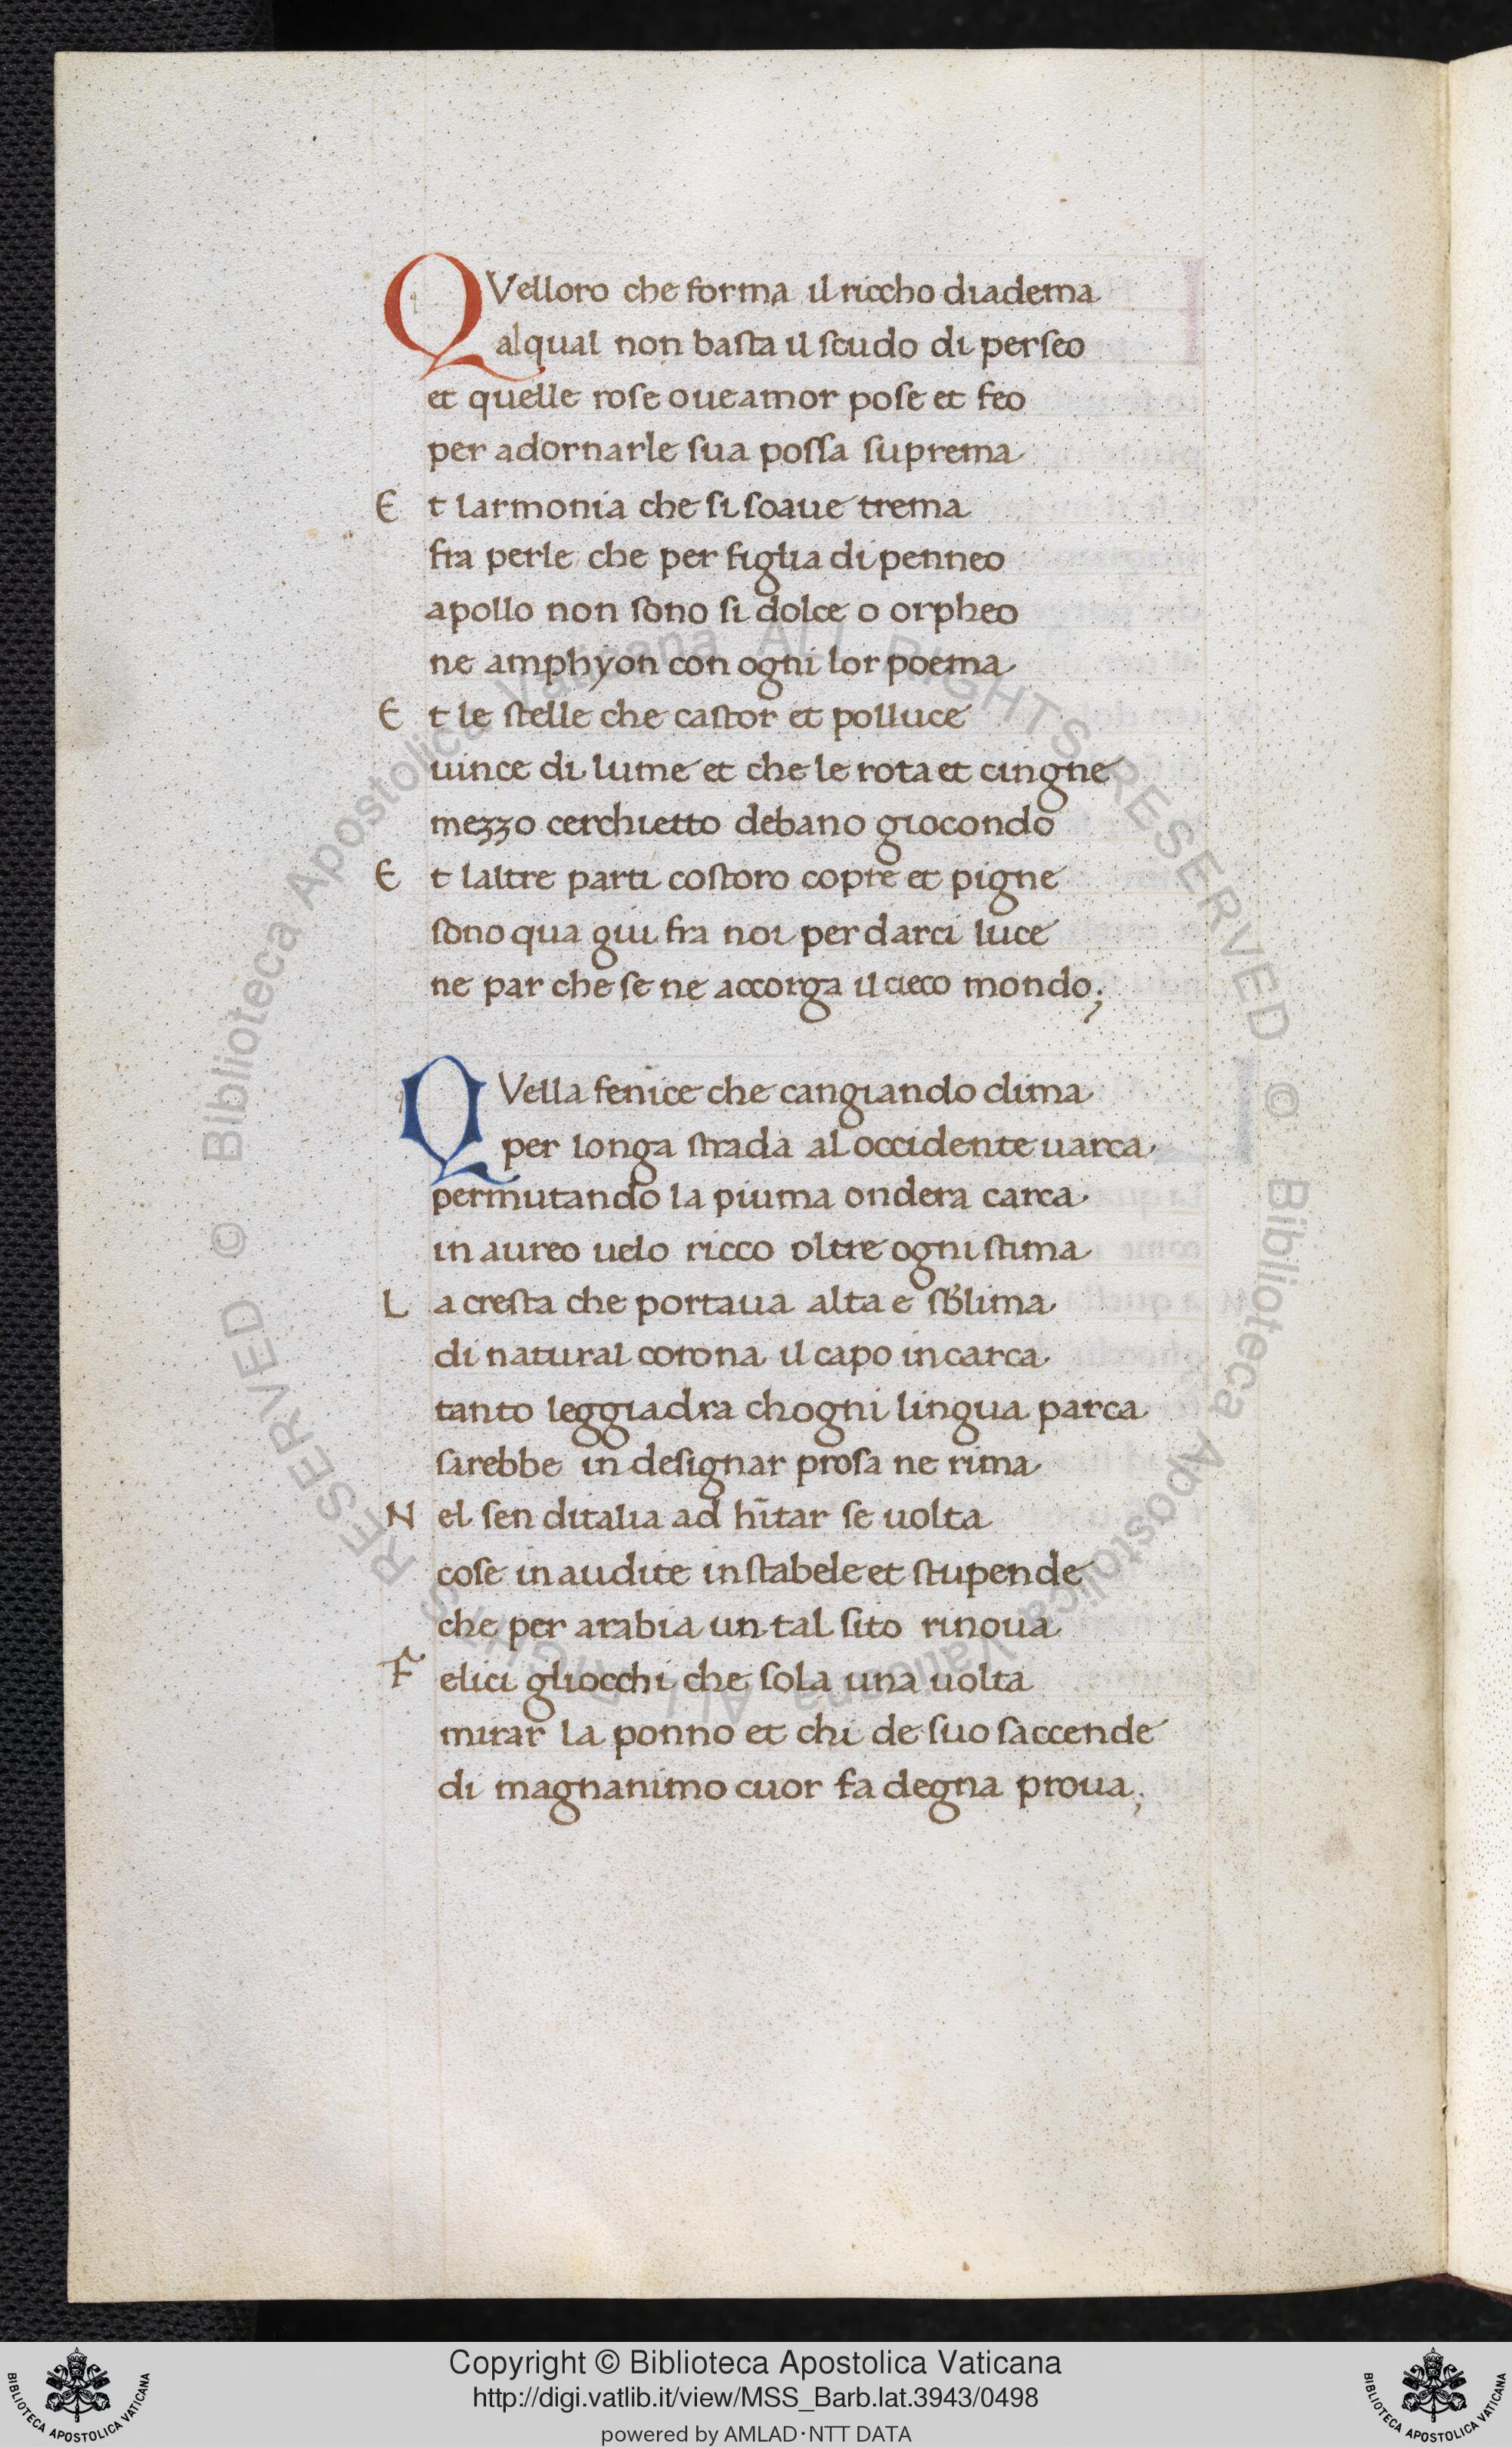 QVelloro che forma il riccho diadema
alqual non basta il scudo di perseo
et quelle rose oue amor pose et feo
per adornarle sua possa suprema
Et larmonia che si soaue trema
fra perle che per figlia di penneo
apollo non sono si dolce o orpheo
ne amphyon con ogni lor poema
Et le stelle che castor et polluce
uince di lume et che le rota et cingne
mezzo cerchietto debano giocondo
Et laltre parti costoro copre et pigne
sono qua giu fra noi per darci luce
ne par che se ne accorga il cieco mondo;
QVella fenice che cangiando clima
per longa strada al occidente uarca
permutando la piuma ondera carca
in aureo uelo ricco oltre ogni stima
La cresta che portaua alta e sƀlima
di natural corona il capo incarca
tanto leggiadra chogni lingua parca
sarebbe in designar prosa ne rima
Nel sen ditalia ad hītar se uolta
cose inaudite instabele et stupende
che per arabia un tal sito rinoua
Felici gliocchi che sola una uolta
mirar la ponno et chi de suo saccende
di magnanimo cuor fa degna proua;
Biblioteca Apostolica Vaticana ALL RIGHTS RESERVED © Biblioteca Apostolica Vaticana ALL RIGHTS RESERVED ©
Copyright © Biblioteca Apostolica Vaticana
http://digi.vatlib.it/view/MSS_Barb.lat.3943/0498
powered by AMLAD·NTT DATA
BIBLIOTECA APOSTOLICA VATICANA
BIBLIOTECA APOSTOLICA VATICANA